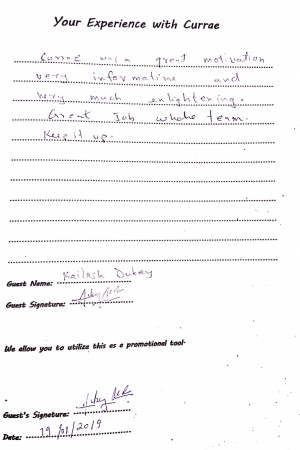 Your Experience with Currae
Currae was a great motivation
very informative and
very much enlightening.
Great Job whole team.
Keep it up.
Guest Name: Kailash Dubey
Guest Signature:
We allow you to utilize this as a promotional tool.
Guest's Signature:
Date: 19/01/2019